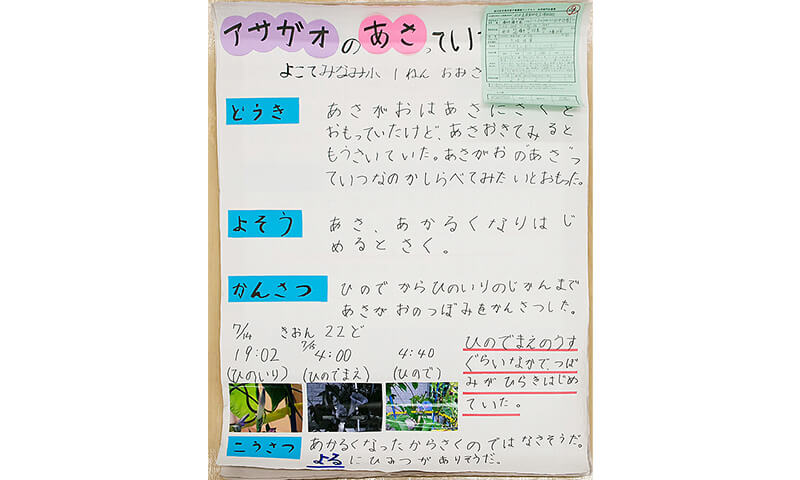 アサガオのあさってい
よこてみなみ小 1ねん おおさ
どうき
あさがおはあさにさくと
おもっていたけど、あさおきてみると
もうさいていた。あさがおの"あさ"っ
ていつなのかしらべてみたいとおもった。
よそう
あさ、あかるくなりはじ
めるとさく。
かんさつ
ひのでからひのいりのじかんまで
あさがおのつぼみをかんさつした。
7/14 きおん 22ど
19:02 7/15 4:00 4:40
(ひのいり) (ひのでまえ) (ひので)
ひのでまえのうす
ぐらいなかで、つぼ
みがひらきはじめ
ていた。
こうさつ
あかるくなったからさくのではなさそうだ。
よるにひみつがありそうだ。